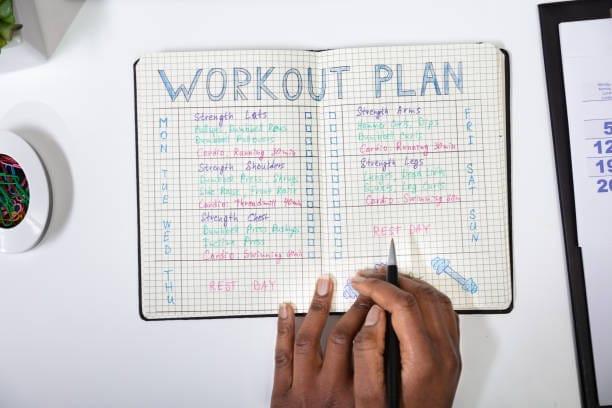 WORKOUT PLAN
MON
Strength Lats
Pullups, Dumbbell Rows
Dumbbell Pullovers
Cardio: Running 30min
TUE
Strength Shoulders
Dumbbell Press, Shrug
Side Raise, Front Raise
Cardio: Threadmill 40min
WED
Strength Chest
Dumbbell Press Pushups
Incline Press
Cardio: Swimming 60min
THU
REST DAY
FRI
Strength Arms
Hammer Curls, Dips
Dumbbell Curls
Cardio: Running 30min
SAT
Strength Legs
Lunges, Dead Lifts
Squats, Leg Curls
Cardio: Swimming 60min
SUN
REST DAY
5
12
19